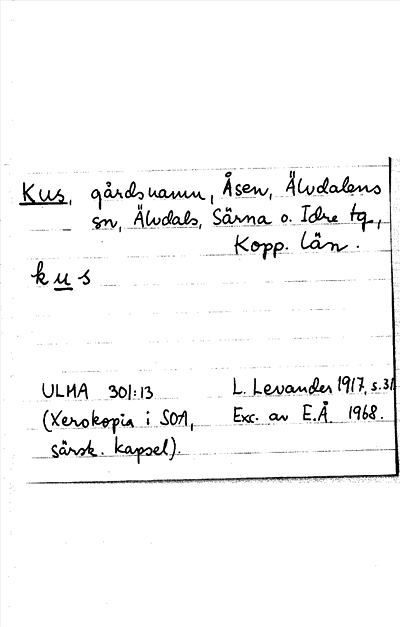 Kus, gårdsnamn, Åsen, Älvdalens
sn, Älvdals, Särna o. Idre tg,
Kopp. län.
kus
ULMA 301:13
(Xerokopia i SOA,
särsk. kapsel).
L. Levander 1917, s.31
Exc. av E.Å. 1968.